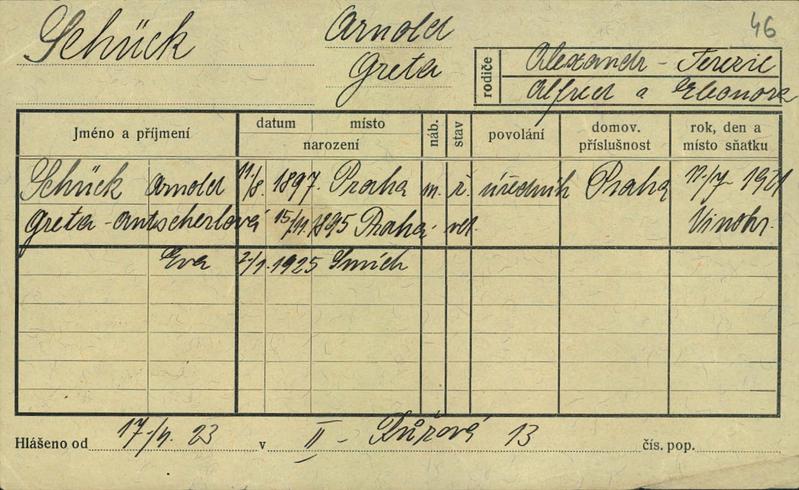 46
Schück Arnold
Greta
rodiče
Alexandr - Terezie
Alfred a Eleonora
Jméno a příjmení datum místo narození náb. stav povolání domov. příslušnost rok, den a místo sňatku
Schück Arnold 11/8. 1897. Praha m. ž. úředník Praha 1921
Greta - Antscherlová 15/11. 1895 Praha
Vinohr.
Eva 2/1. 1925 Smích
Hlášeno od 23 v II - Růžová 13 čís. pop.